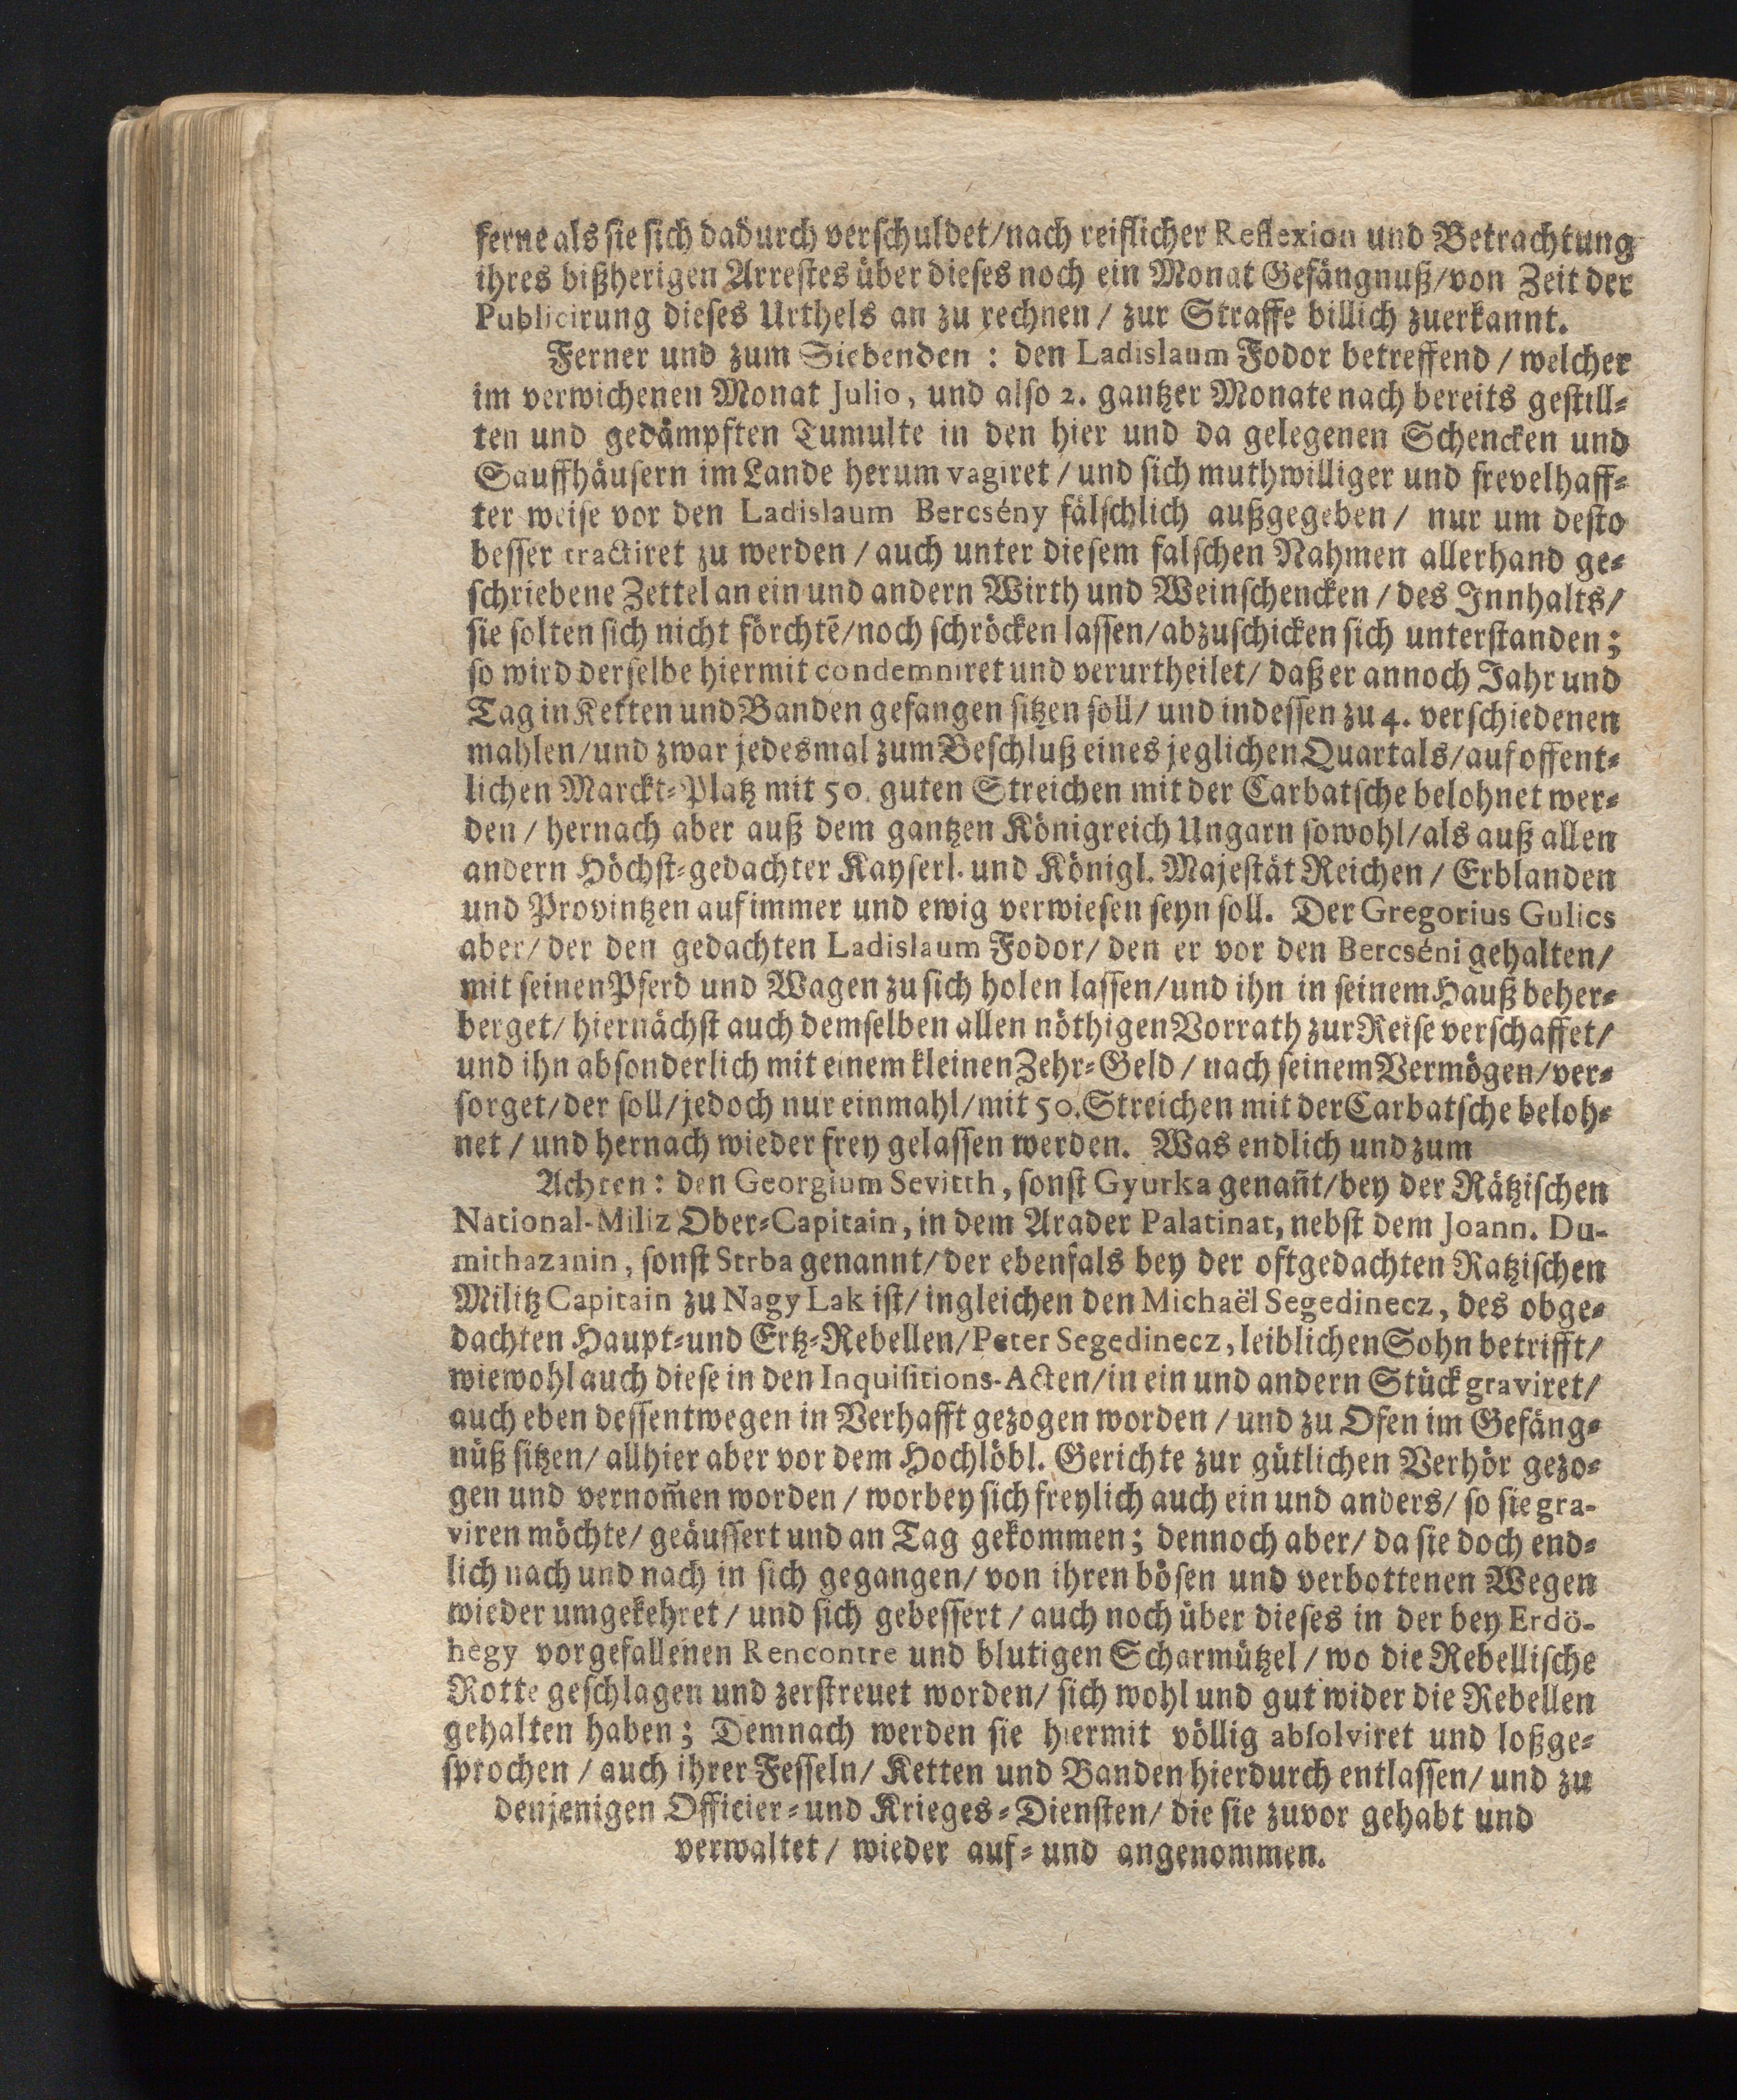 ferne als sie sich dadurch verschuldet/nach reiflicher Reflexion und Betrachtung
ihres bißherigen Arrestes über dieses noch ein Monat Gefängnuß/von Zeit der
Publicirung dieses Urthels an zu rechnen / zur Straffe billich zuerkannt.
Ferner und zum Siebenden : den Ladislaum Fodor betreffend / welcher
im verwichenen Monat Julio, und also 2. gantzer Monate nach bereits gestill-
ten und gedämpften Tumulte in den hier und da gelegenen Schencken und
Sauffhäusern im Lande herum vagiret / und sich muthwilliger und frevelhaff-
ter weise vor den Ladislaum Bercsény fälschlich außgegeben / nur um desto
besser tractiret zu werden / auch unter diesem falschen Nahmen allerhand ge-
schriebene Zettel an ein und andern Wirth und Weinschencken / des Innhalts/
sie solten sich nicht förchtē/noch schröcken lassen/abzuschicken sich unterstanden;
so wird derselbe hiermit condemniret und verurtheilet/ daß er annoch Jahr und
Tag in Ketten und Banden gefangen sitzen soll/ und indessen zu 4. verschiedenen
mahlen/und zwar jedesmal zum Beschluß eines jeglichen Quartals/auf offent-
lichen Marckt-Platz mit 50. guten Streichen mit der Carbatsche belohnet wer-
den / hernach aber auß dem gantzen Königreich Ungarn sowohl/als auß allen
andern Höchst-gedachter Kayserl. und Königl. Majestät Reichen / Erblanden
und Provintzen auf immer und ewig verwiesen seyn soll. Der Gregorius Gulics
aber/ der den gedachten Ladislaum Fodor/ den er vor den Bercséni gehalten/
mit seinen Pferd und Wagen zu sich holen lassen/und ihn in seinem Hauß beher-
berget/ hiernächst auch demselben allen nöthigen Vorrath zur Reise verschaffet/
und ihn absonderlich mit einem kleinen Zehr-Geld / nach seinem Vermögen/ver-
sorget/der soll/jedoch nur einmahl/mit 50. Streichen mit der Carbatsche beloh-
net / und hernach wieder frey gelassen werden. Was endlich und zum
Achten : den Georgium Sevitth, sonst Gyurka genañt/bey der Rätzischen
National-Miliz Ober-Capitain, in dem Arader Palatinat, nebst dem Joann. Du-
mithazanin, sonst Strba genannt/der ebenfals bey der oftgedachten Ratzischen
Militz Capitain zu Nagy Lak ist/ ingleichen den Michaël Segedinecz, des obge-
dachten Haupt-und Ertz-Rebellen/Peter Segedinecz, leiblichen Sohn betrifft/
wiewohl auch diese in den Inquisitions-Acten/in ein und andern Stück graviret/
auch eben dessentwegen in Verhafft gezogen worden / und zu Ofen im Gefäng-
nüß sitzen/ allhier aber vor dem Hochlöbl. Gerichte zur gütlichen Verhör gezo-
gen und vernom̃en worden / worbey sich freylich auch ein und anders/ so sie gra-
viren möchte/ geäussert und an Tag gekommen; dennoch aber/ da sie doch end-
lich nach und nach in sich gegangen/ von ihren bösen und verbottenen Wegen
wieder umgekehret / und sich gebessert / auch noch über dieses in der bey Erdö-
hegy vorgefallenen Rencontre und blutigen Scharmützel / wo die Rebellische
Rotte geschlagen und zerstreuet worden/ sich wohl und gut wider die Rebellen
gehalten haben; Demnach werden sie hiermit völlig absolviret und loßge-
sprochen / auch ihrer Fesseln/ Ketten und Banden hierdurch entlassen/ und zu
denjenigen Officier-und Krieges-Diensten/ die sie zuvor gehabt und
verwaltet / wieder auf-und angenommen.